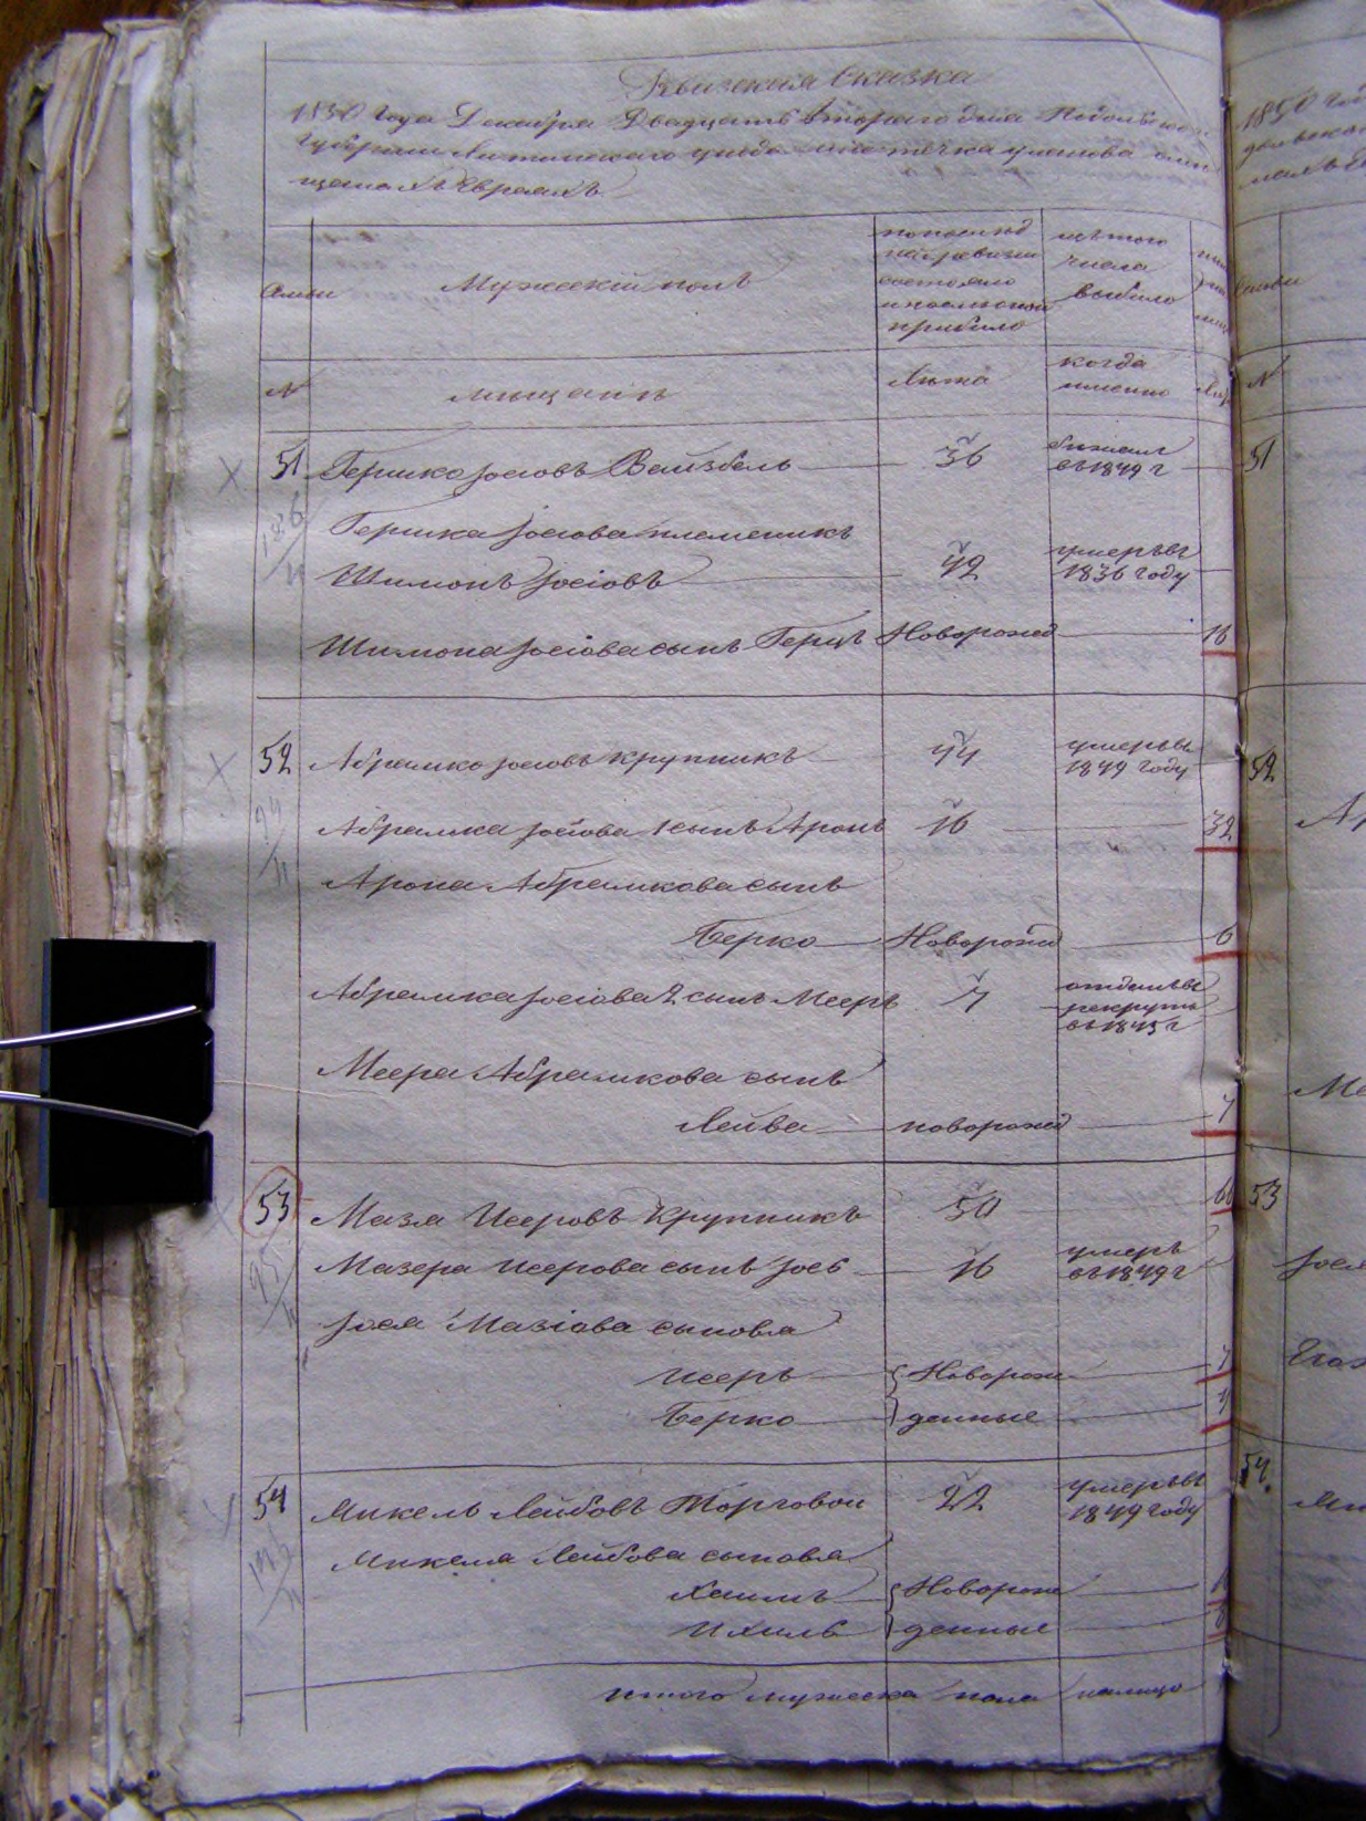 Ревизская Сказка
1850 года Декабря Двадцать второго дня Подольской
Губернии Литинского уезда местечка Уланова о ме
щанахъ Евреяхъ
Семьи
Мужеский полъ
по послед
ней ревизии
состояло
и после оной
прибыло
изъ того
числа
выбыло
№
мещанъ
Лета
когда
именно
51 Гершко Иосiовъ Вайзбель 36 бежалъ
въ 1849 г
Гершка Иосiова племеникъ
Шимонъ Иосiовъ 42 умеръ въ
1836 году
Шимона Иосiова сынъ Герцъ Новорожд 16
52 Абрамко Иосiовъ Крупникъ 44 умеръ въ
1849 году
Абрамка Иосiова 1 сынъ Аронъ 16 32
Арона Абрамкова сынъ
Берко Новорожд 6
Абрамка Иосiова 2 сынъ Мееръ 7 отданъ въ
рекруты
въ 1845 г
Меера Абрамкова сынъ
Лейба новорожд 7
53 Мазя Исеровъ Крупникъ 50 66
Мазера Исерова сынъ Иосъ 16 умеръ
въ 1849 г
Иося Мазiова сыновья
Исеръ Новорож 7
Берко денные 4
54 Микель Лейбовъ Торговой 22 умеръ въ
1849 году
Микеля Лейбова сыновья
Хаимъ Новорож
Ихиль денные
итого мужеска пола налицо
1850 год
Семьи
№
51
52
53
54